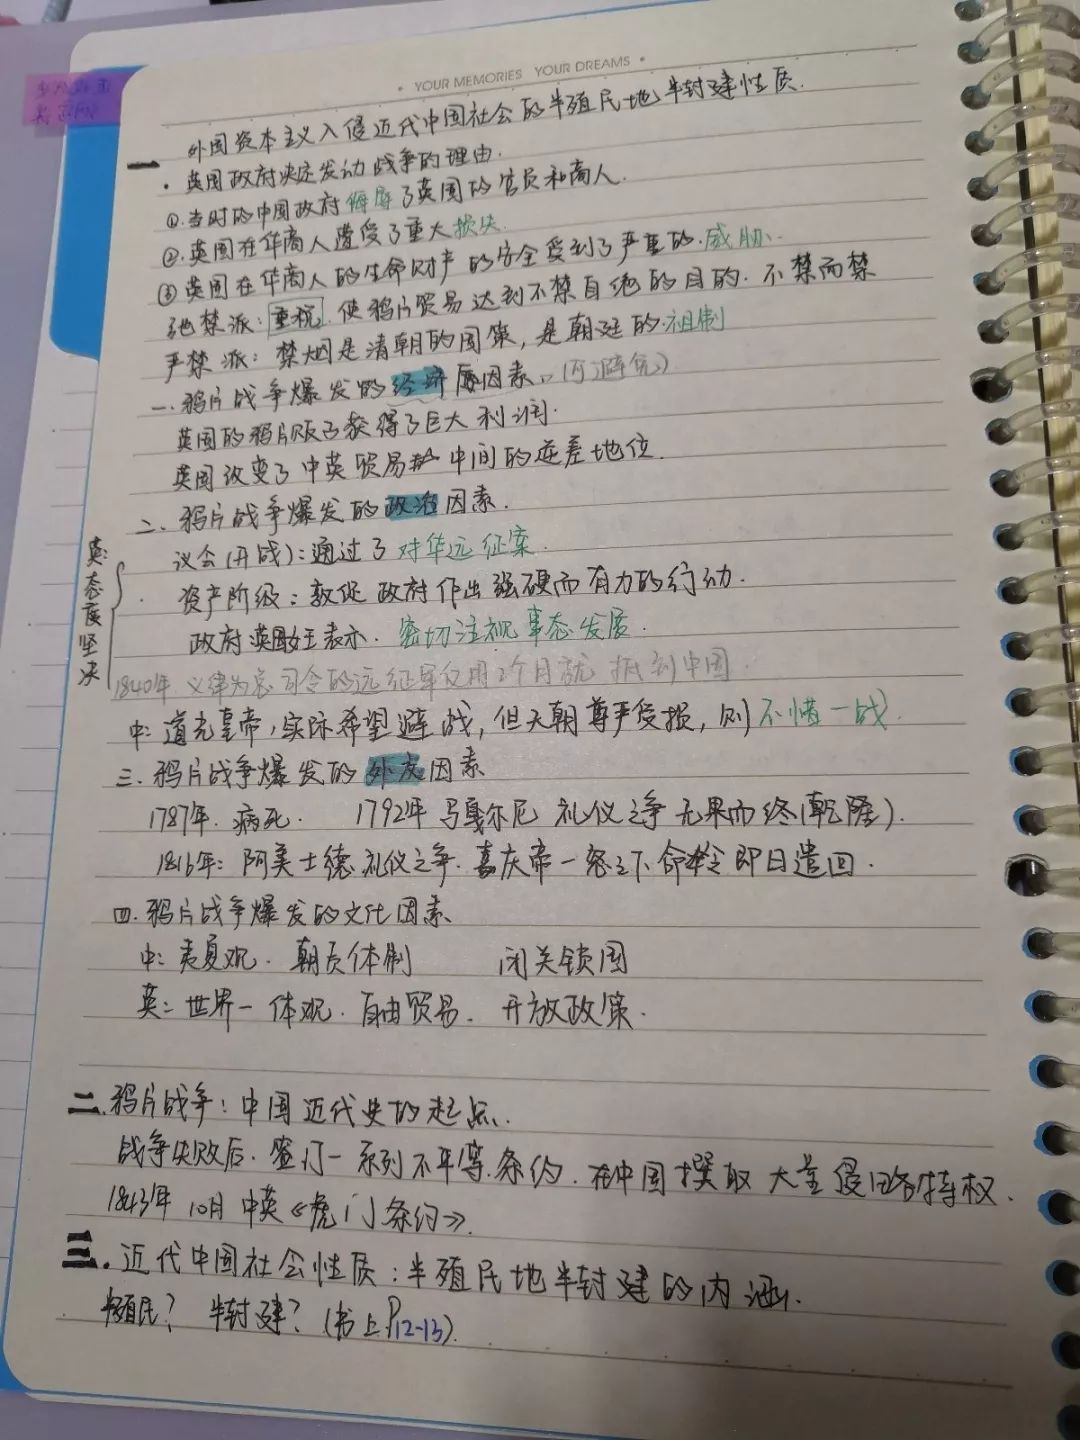 • YOUR MEMORIES YOUR DREAMS •
外国资本主义入侵近代中国社会的半殖民地半封建性质.
一
·英国政府决定发动战争的理由.
①.当时的中国政府侮辱了英国的官员和商人.
②.英国在华商人遭受了重大损失.
③英国在华商人的生命财产的安全受到了严重的.威胁.
弛禁派:重税.使鸦片贸易达到不禁自绝的目的.不禁而禁
严禁派:禁烟是清朝的国策,是朝廷的祖制
一.鸦片战争爆发的经济因素.(可避免)
英国的鸦片贩子获得了巨大利润.
英国改变了中英贸易中间的逆差地位.
二.鸦片战争爆发的政治因素.
英:态度坚决
议会(开战):通过了对华远征案.
资产阶级:敦促政府作出强硬而有力的行动.
政府英国女王表示.密切注视事态发展.
1840年.义律为总司令的远征军仅用2个月就抵到中国.
中:道光皇帝,实际希望避战,但天朝尊严受损,则不惜一战.
三.鸦片战争爆发的外交因素
1787年.病死. 1792年马戛尔尼礼仪之争无果而终(乾隆).
1816年:阿美士德礼仪之争.嘉庆帝一怒之下命令即日遣回.
四.鸦片战争爆发的文化因素
中:夷夏观.朝贡体制 闭关锁国
英:世界一体观.自由贸易.开放政策.
二.鸦片战争:中国近代史的起点.
战争失败后.签订一系列不平等条约.在中国攫取大量侵略特权.
1843年10月中英《虎门条约》.
三.近代中国社会性质:半殖民地半封建的内涵.
半殖民?半封建?(书上P12-13).